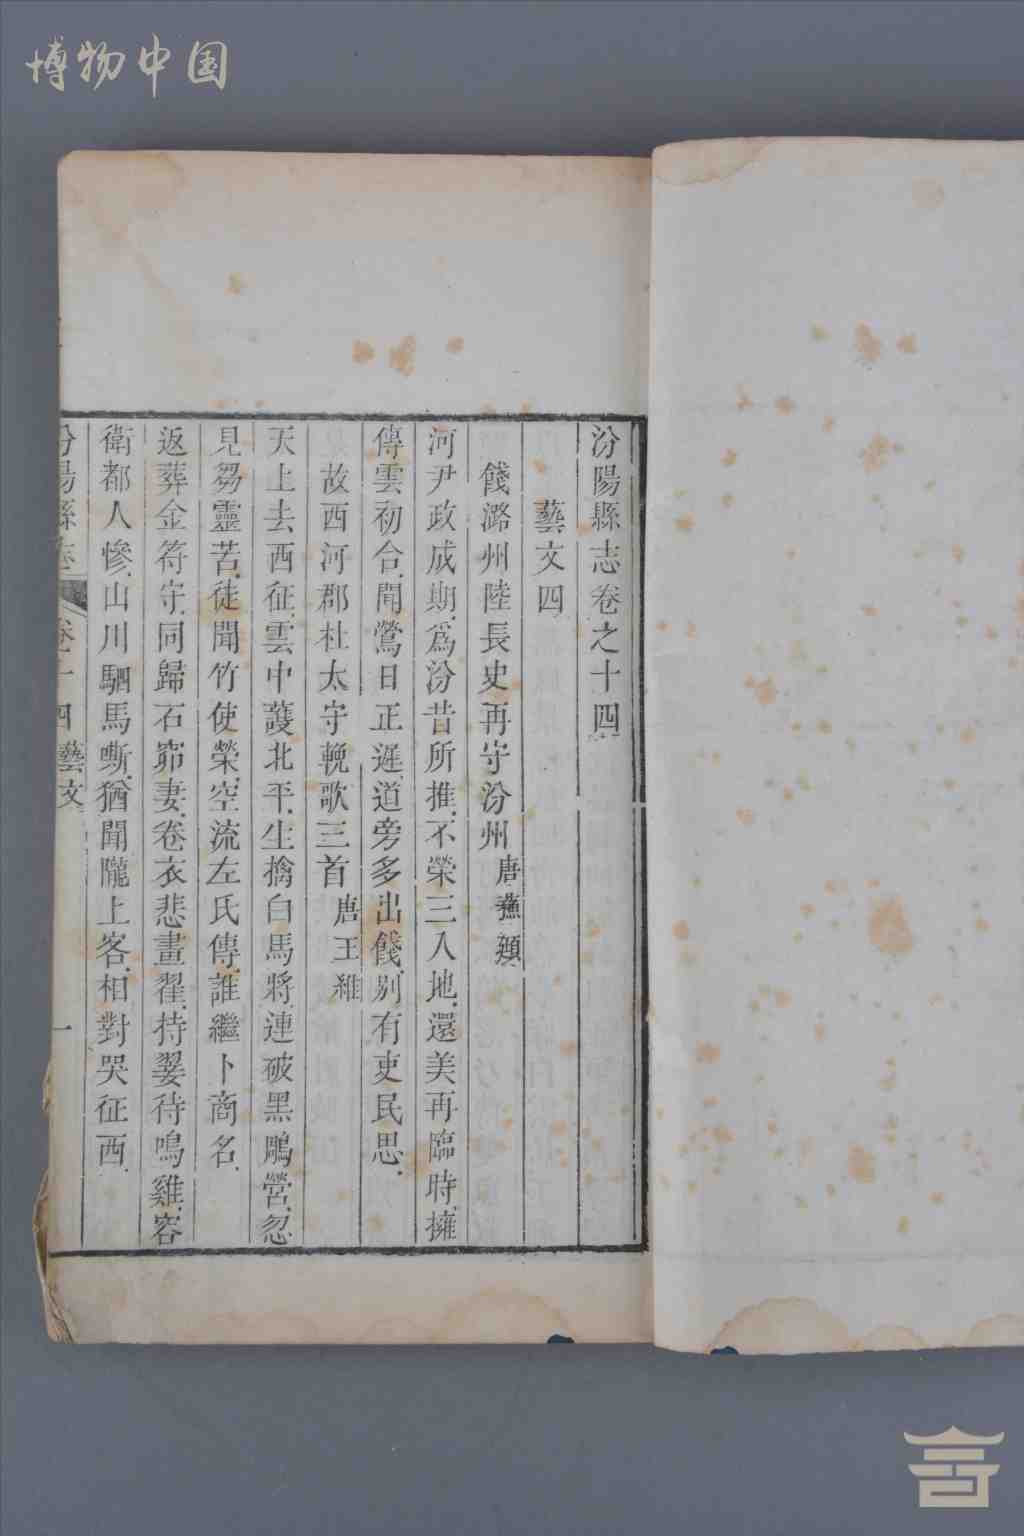 博物中国
汾陽縣志卷之十四
藝文四
餞潞州陸長史再守汾州 唐燕頴
河尹政成期爲汾昔所推不榮三入地還美再臨時擁
傳雲初合聞鶯日正遲道旁多出餞別有吏民思
故西河郡杜太守輓歌三首 唐王維
天上去西征雲中護北平生擒白馬將連破黑鵰營忽
見芻靈苦徒聞竹使榮空流左氏傳誰繼卜商名
返葬金符守同歸石窌妻卷衣悲畫翟持翣待鳴雞容
衛都人慘山川駟馬嘶猶聞隴上客相對哭征西
汾陽縣志 卷十四 藝文 一